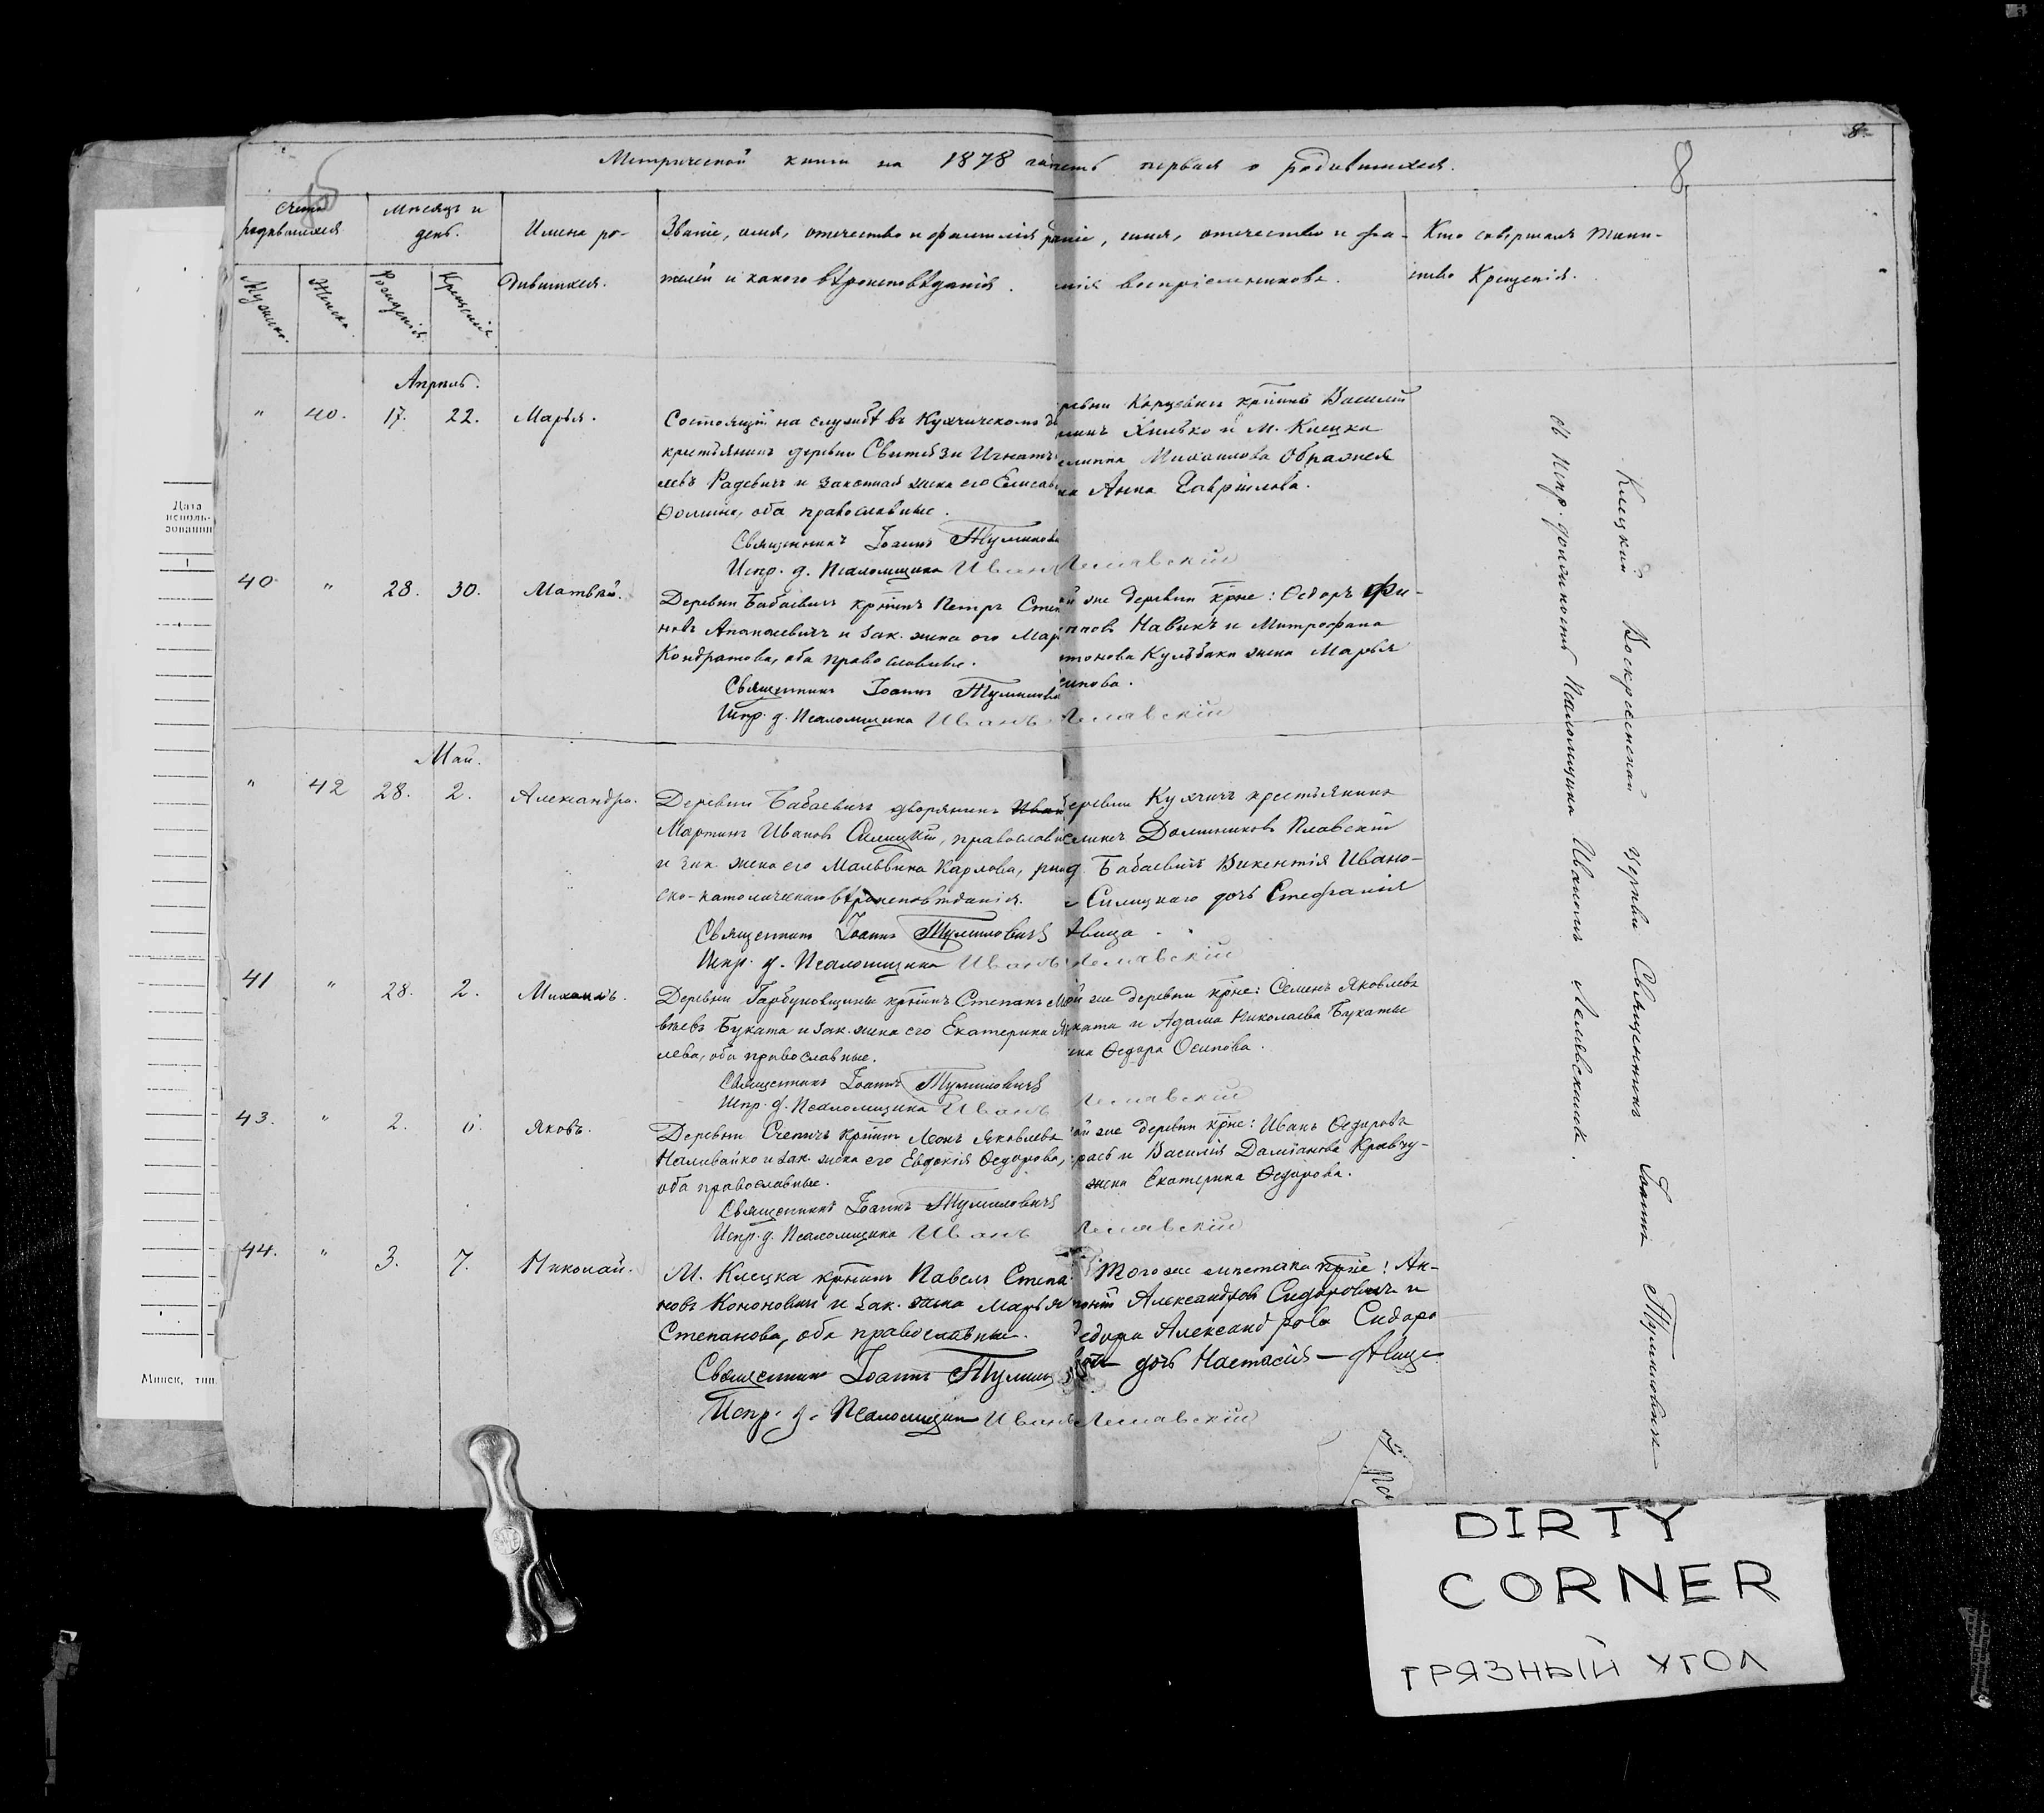 8
Метрической книги на 1878 часть первая о родившихся.
8
счетъ родившихся
Мѣсяцъ и день.
Имена родившихся.
Званіе, имя, отечество и фамилія
телей и какого вѣроисповѣданія.
аніе, имя, отечество и фа-
милія воспріемниковъ.
Кто совершалъ таин-
ство Крещенія.
Мужска.
Женска.
Рожденія.
Крещенія.
Апрѣль.
" 40. 17. 22. Марья.
Состоящій на службѣ въ Кухчическомъ
крестьянинъ деревни Свитязи Игнат
Радевичъ и законная жена его Елисав
Ѳомина, оба православные.
Священникъ Іоаннъ Тумилови
Испр. д. Псаломщика Иванъ Лешавскій
крстнъ Василій
Хилько и М. Клецка
Михаилова
Анна Гаврілова.
40 " 28. 30. Матвѣй.
Деревни Бабаевичъ крстнъ Петръ Степ
новъ Апанасевичъ и зак. жена его Мар
Кондратова, оба православные.
Священникъ Іоаннъ Тумилови
Испр. д. Псаломщика Иванъ Лешавскій
й же деревни крне: Ѳедоръ Фи-
повъ Навикъ и Митрофана
тонова Кульбаки жена Марья
ипова.
Май.
" 42 28. 2. Александра.
Деревни Бабаевичъ дворянинъ Иван
Мартинъ Ивановъ Силицкій, православн
и зак жена его Мальвина Карлова, рим
ско-католическаго вѣроисповѣданія.
Священникъ Іоаннъ Тумиловичъ
Испр. д. Псаломщика Иванъ Лешавскій
деревни Кухчичъ крестьянинъ
Доминиковъ Плавскій
д. Бабаевичъ Викентія Ивано-
Силицкаго дочь Стефанія
дѣвица.
41 " 28. 2. Михаилъ.
Деревни Гарбуновщины крстнъ Степанъ Мат
вѣевъ Буката и зак. жена его Екатерина Як
лева, оба православные.
Священникъ Іоаннъ Тумиловичъ
Испр. д. Псаломщика Иванъ Лешавскій
й же деревни крне: Семенъ Яковлевъ
ката и Адама Николаева Букаты
на Ѳедора Осипова.
43. " 2. 6. Яковъ.
Деревни Счепичъ крстнъ Леонъ Яковлевъ
Наливайко и зак. жена его Евдокія Ѳедорова,
оба православные.
Священникъ Іоаннъ Тумиловичъ
Испр. д. Псаломщика Иванъ Лешавскій
ой же деревни крне: Иванъ Ѳедоровъ
рась и Василія Даміанова Кравчу-
жена Екатерина Ѳедорова.
44. " 3. 7. Николай.
М. Клецка крстнъ Павелъ Степа
новъ Кононовичъ и зак. жена Марья
Степанова, оба православные.
Священникъ Іоаннъ Тумил
Испр. д. Псаломщик Иванъ Лешавскій
Того же мѣстечка крне: Ан-
тоній Александровъ Сидоровичъ и
Ѳедора Александрова Сидоро
дочь Настасія — дѣвица
Клецкій Воскресенской церкви Священникъ Іоаннъ Тумиловичъ
съ Испр. должность Псаломщика Иваномъ Лешавскимъ.
Дата
исполь-
зования
1
Минск, тип.
DIRTY
CORNER
ГРЯЗНЫЙ УГОЛ